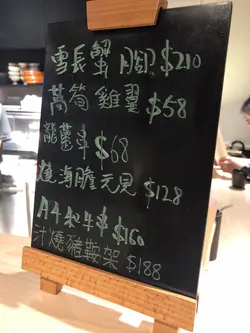 雪長蟹腳$210
萵筍雞翼$58
$68
燒海膽元貝$128
A4和牛串$160
汁燒豬鞍架$188